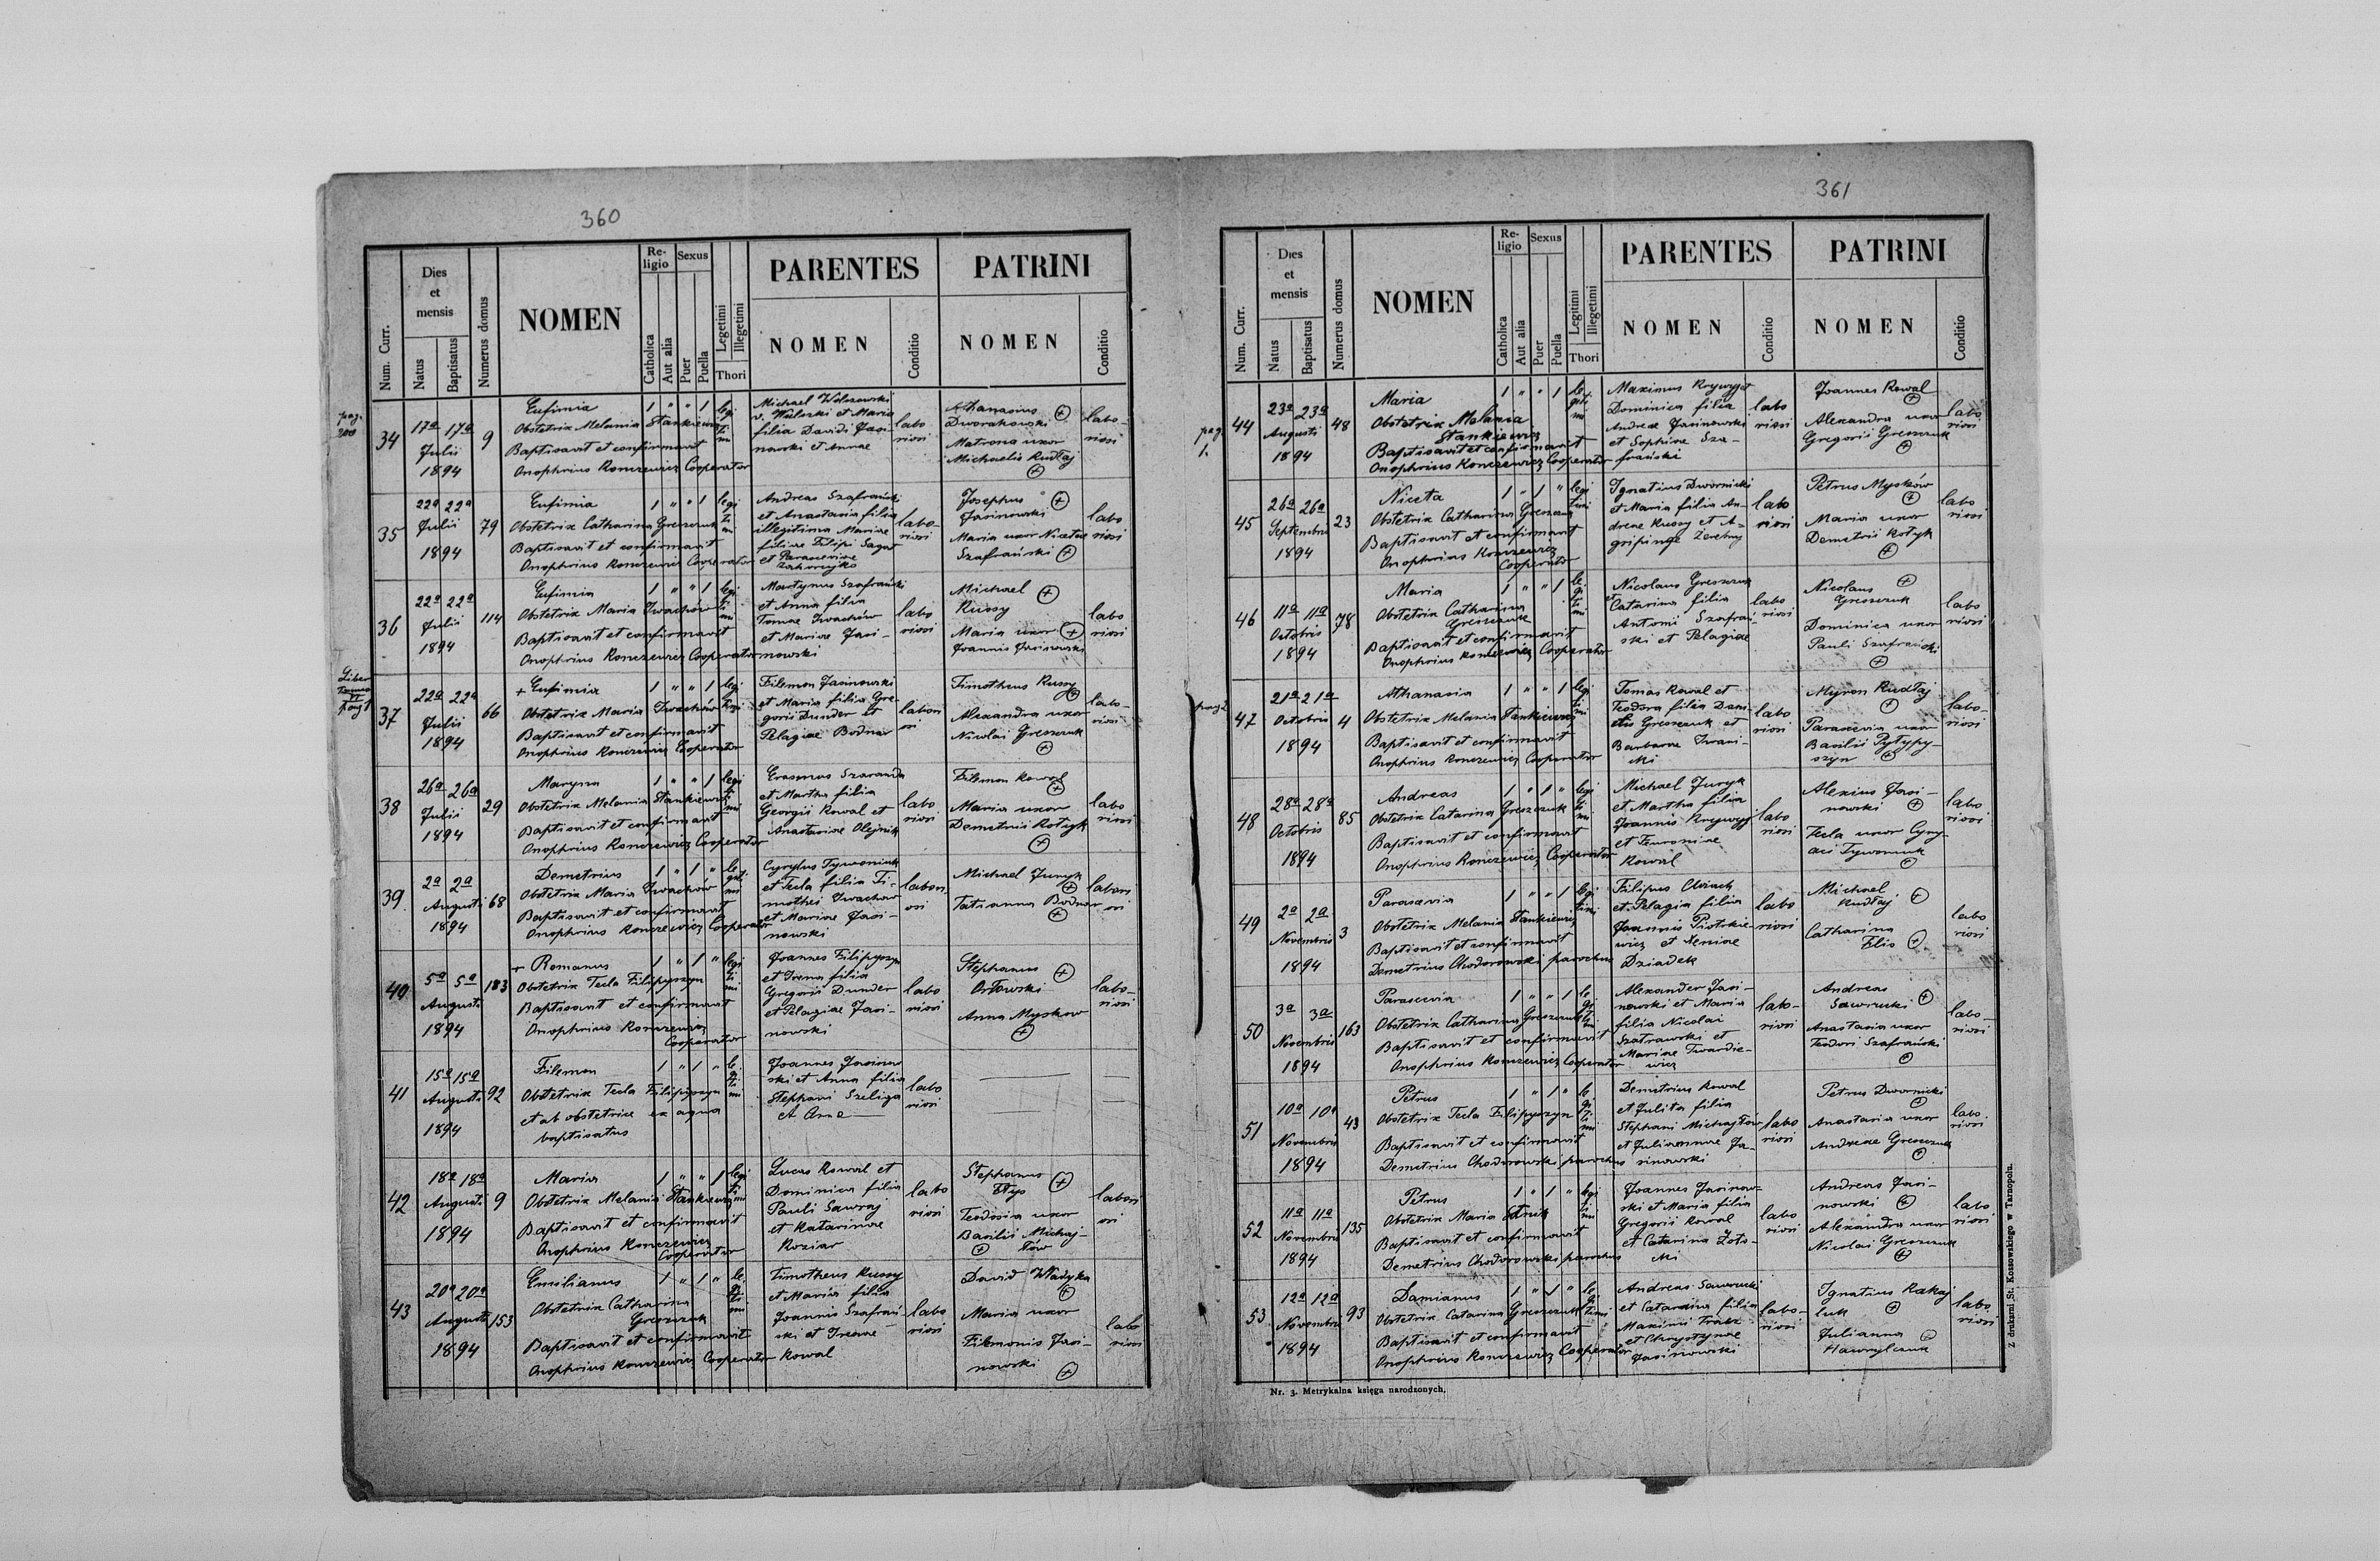 360
Num. Curr.
Dies et mensis
Natus
Baptisatus
Numerus domus
NOMEN
Religio
Catholica
Aut alia
Sexus
Puer
Puella
Legetimi
Illegetimi
Thori
PARENTES
NOMEN
Conditio
PATRINI
NOMEN
Conditio
pag.
34
17a 17a
Julii
1894
9
Eufimia
Obstetrix Melania Stankiewicz
Baptisavit et confirmavit
Onophrius Konczewicz Cooperator
1 " " 1
legi
ti
mi
Michael Welszowski
v. Walaski et Maria
filia Davidi Jasi-
nowski et Annae
labo
riosi
Athanasius
Dworakowski
Matrona uxor
Michaelis Rudłaj
labo-
riosi
35
22a 22a
Julii
1894
79
Eufimia
Obstetrix Catharina Greszczuk
Baptisavit et confirmavit
Onophrius Konczewicz Cooperator
1 " " 1
legi
ti
mi
Andreas Szafrański
et Anastasia filia
illegitima Mariae
filiae Filipi Sagat
et Parasceviae
labo-
riosi
Josephus
Jasinowski
Maria uxor Nicetae
Szafrański
labo
riosi
36
22a 22a
Julii
1894
114
Eufimia
Obstetrix Maria Iwachów
Baptisavit et confirmavit
Onophrius Konczewicz Cooperator
1 " " 1
legi
ti
mi
Martynus Szafrański
et Anna filia
Tomae Iwachów
et Mariae Jasi-
nowski
labo
riosi
Michael
Russy
Maria uxor
Joannis Jasinowski
labo
riosi
Liber
Tomus
VI
pag 1
37
22a 22a
Julii
1894
66
+ Eufimia
Obstetrix Maria Iwachów
Baptisavit et confirmavit
Onophrius Konczewicz Cooperator
1 " " 1
legi
Filemon Jasinowski
et Maria filia Gre-
gorii Dunder et
Pelagiae Bodnar
labori
osi
Timotheus Russy
Alexandra uxor
Nicolai Greszczuk
labo-
riosi
38
26a 26a
Julii
1894
29
Maryna
Obstetrix Melania Stankiewicz
Baptisavit et confirmavit
Onophrius Konczewicz Cooperator
1 " " 1
legi
ti
mi
Erasmus Szaranda
et Martha filia
Georgii Kowal et
Anastasiae Olejnik
labo
riosi
Filemon Kowal
Maria uxor
Demetrii Kotyk
labo
riosi
39
2a 2a
Augusti
1894
68
Demetrius
Obstetrix Maria Iwachów
Baptisavit et confirmavit
Onophrius Konczewicz Cooperator
1 " 1 "
le
giti
mi
Cyrylus Tywoniuk
et Tecla filia Ti-
mothei Iwachów
et Mariae Jasi-
nowski
labori
osi
Michael Juryk
Tatianna Bodnar
labori
osi
40
5a 5a
Augusti
1894
183
+ Romanus
Obstetrix Tecla Filipyszyn
Baptisavit et confirmavit
Onophrius Konczewicz
Cooperator
1 " 1 "
legi
ti
mi
Joannes Filipyszyn
et Irena filia
Gregorii Dunder
et Pelagiae Jasi-
nowski
labo
riosi
Stephanus
Orłowski
Anna Myskow
labo-
riosi
41
15a 15a
Augusti
1894
92
Filemon
Obstetrix Tecla Filipyszyn
et ab obstetrice ex aqua
baptisatus
1 " 1 "
le
gi
ti
mi
Joannes Jasinow
ski et Anna filia
Stephani Szeliga
et Anna
labo
riosi
42
18a 18a
Augusti
1894
9
Maria
Obstetrix Melania Stankiewicz
Baptisavit et confirmavit
Onophrius Konczewicz
Cooperator
1 " " 1
legi
ti
mi
Lucas Kowal et
Dominica filia
Pauli Sawraj
et Katarinae
Koziar
labo
riosi
Stephanus
Teodosia uxor
Basilii Michaj-
łów
labori
osi
43
20a 20a
Augusti
1894
153
Emilianus
Obstetrix Catharina
Greszczuk
Baptisavit et confirmavit
Onophrius Konczewicz Cooperator
1 " 1 "
le
gi
ti
mi
Timotheus Russy
et Maria filia
Joannis Szafrań
ski et Irenae
Kowal
labo
riosi
David Władyka
Maria uxor
Filemonis Jasi-
nowski
labo
riosi
361
Num. Curr.
Dies et mensis
Natus
Baptisatus
Numerus domus
NOMEN
Religio
Catholica
Aut alia
Sexus
Puer
Puella
Legitimi
Illegetimi
Thori
PARENTES
NOMEN
Conditio
PATRINI
NOMEN
Conditio
pag
1.
44
23a 23a
Augusti
1894
48
Maria
Obstetrix Melania
Stankiewicz
Baptisavit et confirmavit
Onophrius Konczewicz Cooperator
1 " " 1
le
giti
mi
Maximus Krywyj
Dominica filia
Andreae Jasinowski
et Sophiae Sza-
frański
labo
riosi
Joannes Kowal
Alexandra uxor
Gregorii Greszczuk
labo
riosi
45
26a 26a
Septembris
1894
23
Niceta
Obstetrix Catharina Greszczuk
Baptisavit et confirmavit
Onophrius Konczewicz
Cooperator
1 " 1 "
legi
timi
Ignatius Dwornicki
et Maria filia An-
dreae Russy et A-
gripinae Żerebny
labo
riosi
Petrus Myśków
Maria uxor
Demetrii Kotyk
labo
riosi
46
11a 11a
Octobris
1894
78
Maria
Obstetrix Catharina
Greszczuk
Baptisavit et confirmavit
Onophrius Konczewicz Cooperator
1 " " 1
le
gi
ti
mi
Nicolaus Greszczuk
et Catarina filia
Antoni Szafrań
ski et Pelagiae
labo
riosi
Nicolaus
Greszczuk
Dominica uxor
Pauli Szafrański
labo
riosi
pag 2
47
21a 21a
Octobris
1894
4
Athanasia
Obstetrix Melania Stankiewicz
Baptisavit et confirmavit
Onophrius Konczewicz Cooperator
1 " " 1
legi
ti
mi
Tomas Kowal et
Teodora filia Dani-
elis Greszczuk et
Barbarae Iwani-
cki
labo
riosi
Myron Rudłaj
Parascevia uxor
Basilii Pytypy-
szyn
labo-
riosi
48
28a 28a
Octobris
1894
85
Andreas
Obstetrix Catarina Greszczuk
Baptisavit et confirmavit
Onophrius Konczewicz Cooperator
1 " 1 "
legi
ti
mi
Michael Juryk
et Martha filia
Joannis Krywyj
et Fewroniae
Kowal
labo
riosi
Alexius Jasi-
nowski
Tecla uxor Cyry-
aci Tywoniuk
labo
riosi
49
2a 2a
Novembris
1894
3
Parascevia
Obstetrix Melania Stankiewicz
Baptisavit et confirmavit
Demetrius Chodorowski parochus
1 " " 1
legi
timi
Filipus
et Pelagia filia
Joannis Piotrkie-
wicz et Xeniae
Dziadek
labo
riosi
Michael
Rudłaj
Catharina
Elis
labo
riosi
50
3a 3a
Novembris
1894
163
Parascevia
Obstetrix Catharina Greszczuk
Baptisavit et confirmavit
Onophrius Konczewicz Cooperator
1 " " 1
le
gi
ti
mi
Alexander Jasi-
nowski et Maria
filia Nicolai
Szatrawski et
Mariae Twardie-
wicz
labo-
riosi
Andreas
Sawrucki
Anastasia uxor
Teodori Szafrański
labo-
riosi
51
10a 10a
Novembris
1894
43
Petrus
Obstetrix Tecla Filipyszyn
Baptisavit et confirmavit
Demetrius Chodorowski parochus
1 " 1 "
le
gi
ti
mi
Demetrius Kowal
et Julita filia
Stephani Michajłów
et Juliannae Ja-
sinowski
labo
riosi
Petrus Dwornicki
Anastasia uxor
Andreae Greszczuk
labo
riosi
52
11a 11a
Novembris
1894
135
Petrus
Obstetrix Maria
Baptisavit et confirmavit
Demetrius Chodorowski parochus
1 " 1 "
legi
ti
mi
Joannes Jasinow-
ski et Maria filia
Gregorii Kowal
et Catarina Zoto-
cki
labo
riosi
Andreas Jasi-
nowski
Alexandra uxor
Nicolai Greszczuk
labo
riosi
53
12a 12a
Novembris
1894
93
Damianus
Obstetrix Catarina Greszczuk
Baptisavit et confirmavit
Onophrius Konczewicz Cooperator
1 " 1 "
le
gi
timi
Andreas Sawrucki
et Catarina filia
Maximi
et Chrystynae
Jasinowski
labo-
riosi
Ignatius Rakaj
luk
Julianna
Hawrylczuk
labo
riosi
Nr. 3. Metrykalna księga narodzonych.
Z drukarni St. Kossowskiego w Tarnopolu.